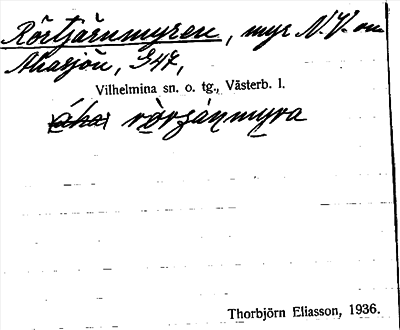 Rörtjärnmyren, myr N.V. om
Ahasjön, S47,
Vilhelmina sn. o. tg., Västerb. l.
rö̀rʒáṇmyra
Thorbjörn Eliasson, 1936.